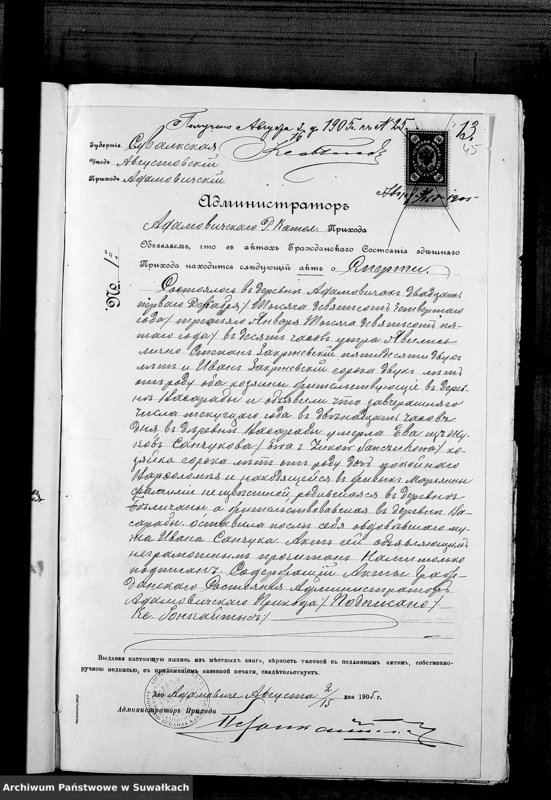 Получено Августа 3/16 д. 1905 г. № 25
13
45
Губернія Сувалкская
Уѣздъ Августовскій
Приходъ Адамовичскій
Администраторъ
Адамовичскаго Р. Катол. Прихода
Объявляетъ, что въ актахъ Гражданскаго Состоянія здѣшняго
Прихода находится слѣдующій актъ о Смерти.
№ 1
Состоялось въ деревнѣ Адамовичахъ двадцать
перваго Декабря / тысяча девятьсотъ четвертаго
года / третьяго Января тысяча девятьсотъ пя-
таго года / въ десять часовъ утра. Явились
лично Степанъ Закржевскій пятидесяти двухъ
лѣтъ и Иванъ Закржевскій сорока двухъ лѣтъ
отъ роду оба хозяины жительствующіе въ дерев-
нѣ Насарады и объявили что завчерашняго
числа текущаго года въ двѣнадцать часовъ
дня въ деревнѣ Насарады умерла Ева изъ Жу-
ковъ Санчукова / Ewa z Żuków Sańczukowa / хо-
зяйка сорока лѣтъ отъ роду дочь покойнаго
Варѳоломея и находящейся въ живыхъ Маріанны
фамиліи неизвѣстной родившаяся въ деревнѣ
а жительствовавшая въ деревнѣ На-
сарады оставила послѣ себя овдовѣвшаго му-
жа Ивана Санчука. Актъ сей объявляющимъ
неграмотнымъ прочитанъ Нами только
подписанъ. Содержащій Акты Граж-
данскаго Состоянія Администраторъ
Адамовичскаго Прихода / Подписано /
Кс.
Выдавая настоящую выпись изъ мѣстныхъ книгъ, вѣрность таковой съ подлиннымъ актомъ, собственно-
ручною подписью, съ приложеніемъ казенной печати, свидѣтельствуетъ.
Дер. Адамовиче Августа 2/15 дня 1905 г.
Администраторъ Прихода
Archiwum Państwowe w Suwałkach